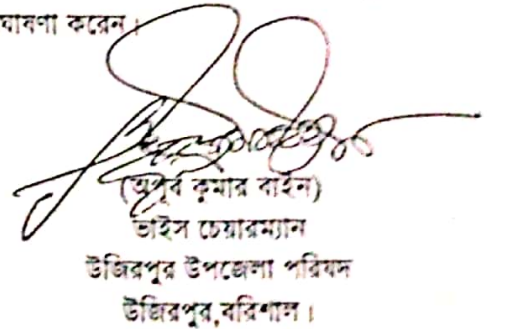 ঘাষণা করেন।
(অপূর্ব কুমার বাইন)
ভাইস চেয়ারম্যান
উজিরপুর উপজেলা পরিষদ
উজিরপুর,বরিশাল।